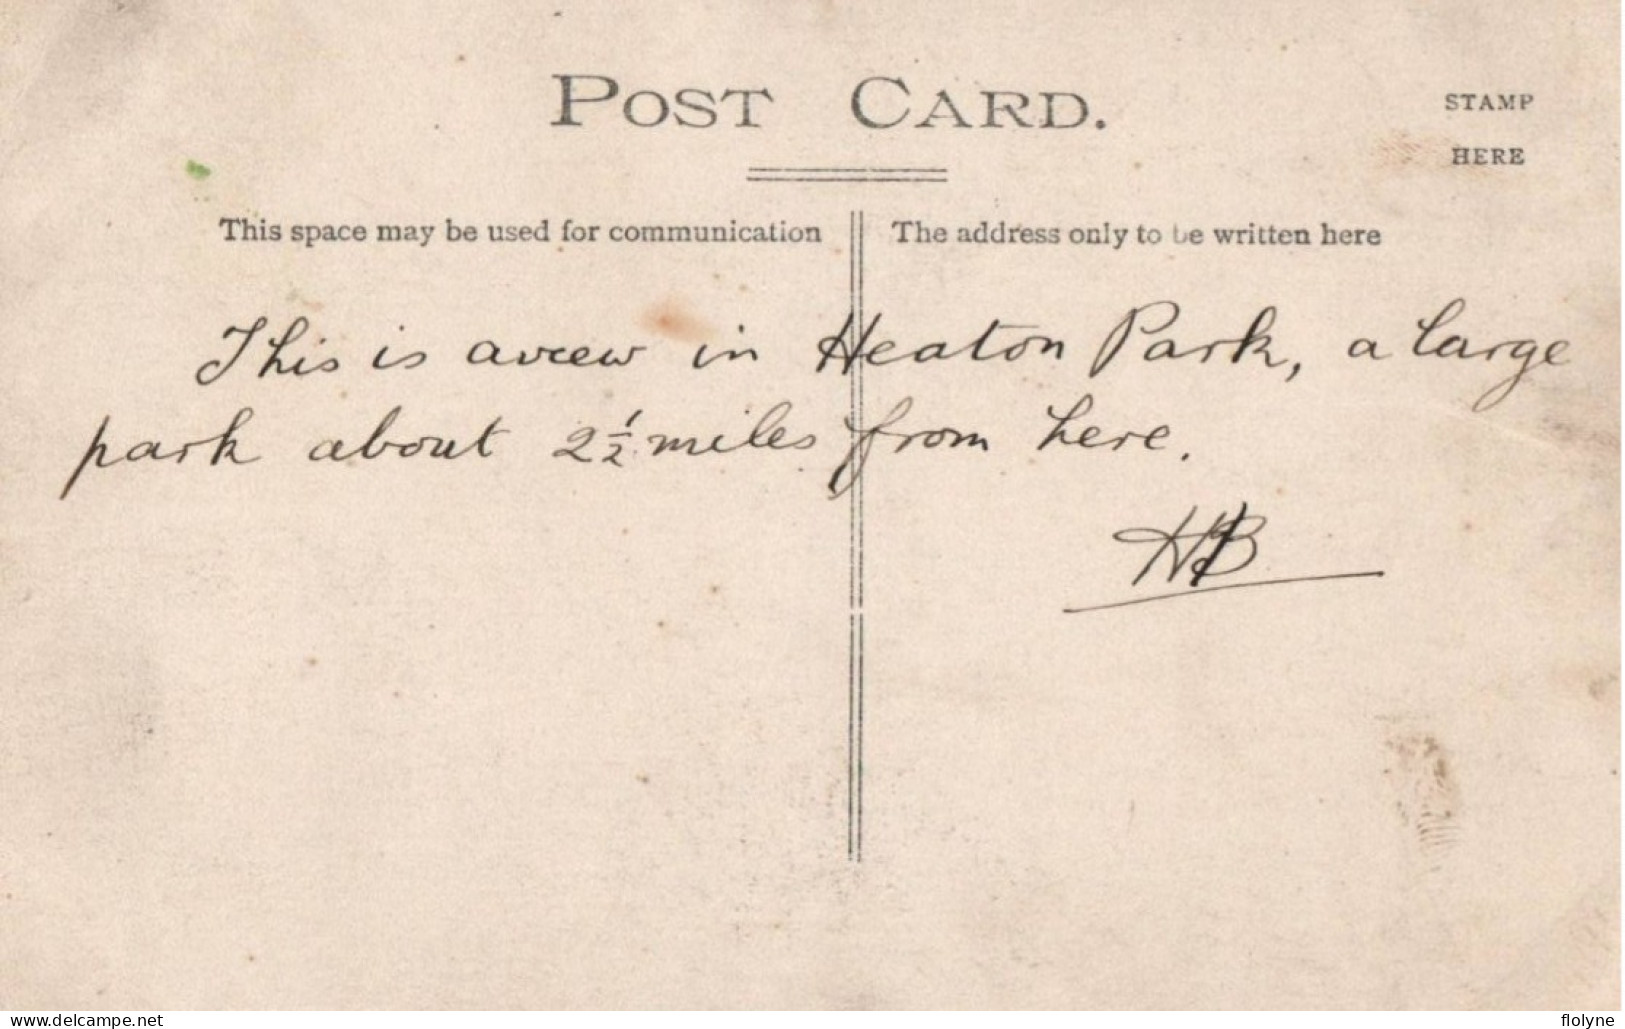 POST CARD.
STAMP
HERE
This space may be used for communication
The address only to be written here
This is a view in Heaton Park, a large
park about 2½ miles from here.
HB
www.delcampe.net
flolyne